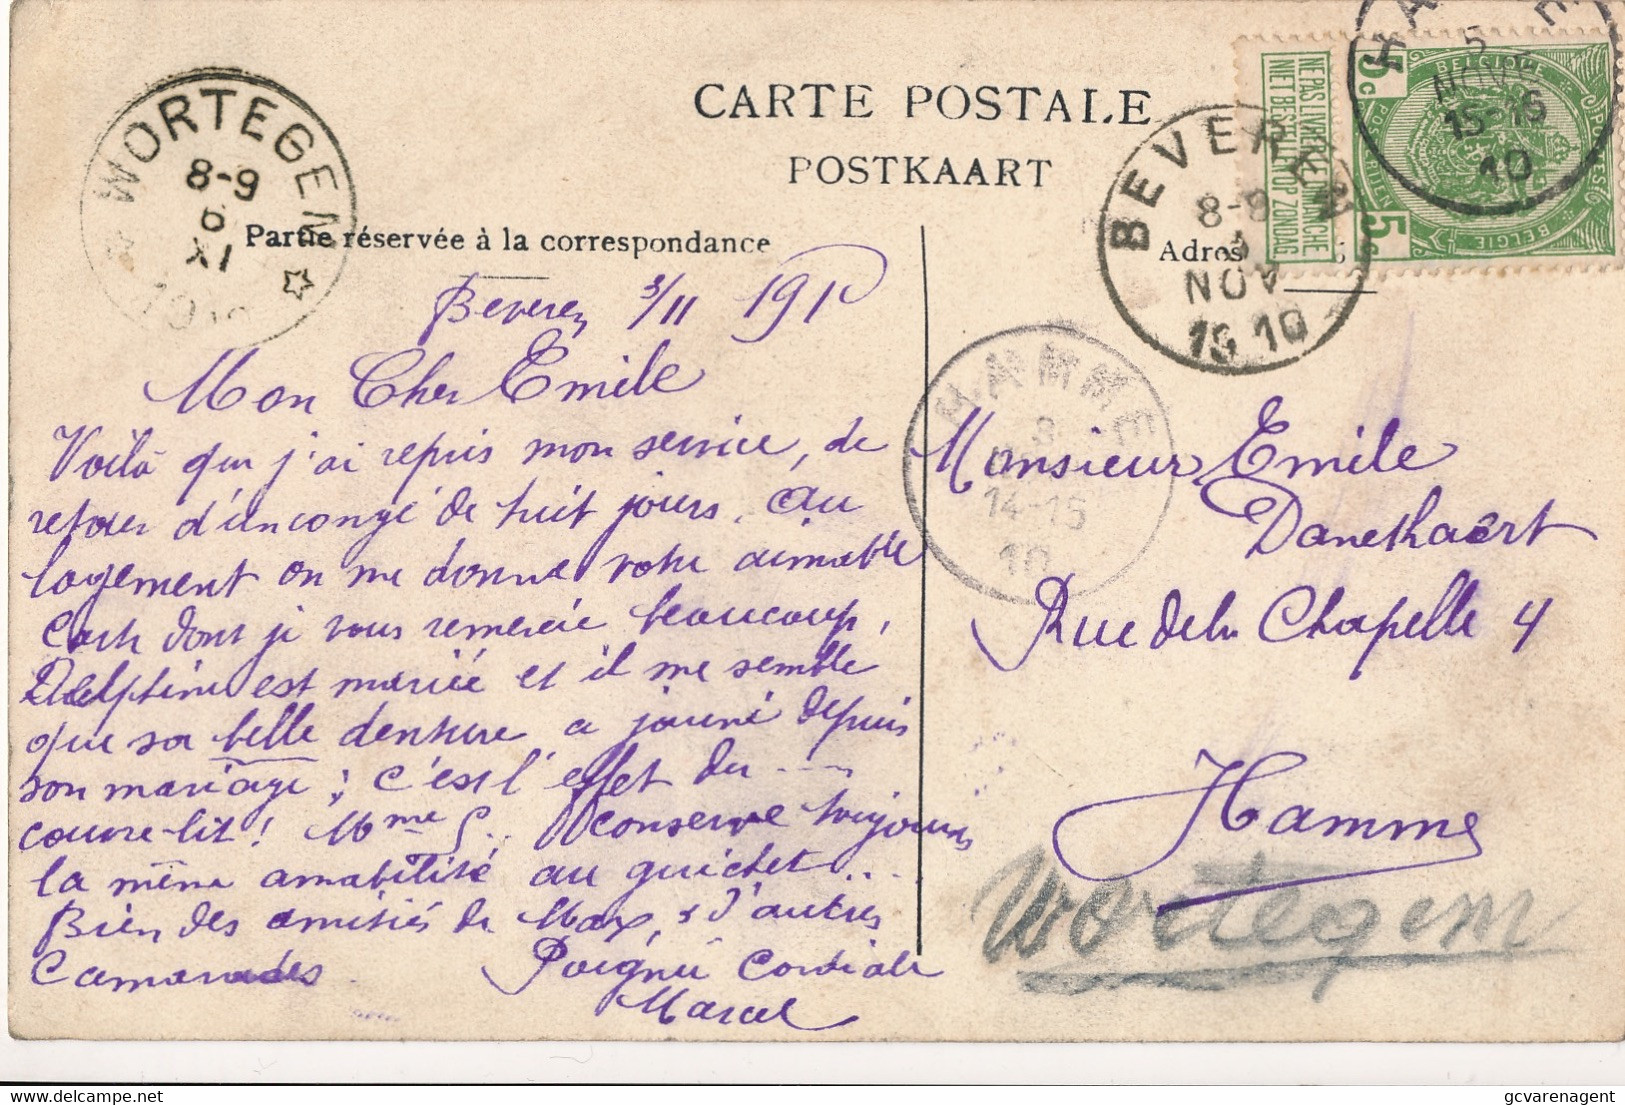 CARTE POSTALE
POSTKAART
Partie réservée à la correspondance
Adres
WORTEGEM
8-9
6
XI
BEVEREN
8-9
NOV
15 10
HAMME
14-15
10
5
NOV
15-16
10
NE PAS LIVRER LE DIMANCHE
NIET BESTELLEN OP ZONDAG
BELGIQUE
POSTES
BELGIE
POSTERIJEN
5c
5c
Beveren 3/11 1910
Mon Cher Emile
Voilà que j'ai repris mon service, de
retour d'un congé de huit jours. Au
logement on me donne votre aimable
Carte dont je vous remercie beaucoup,
Delphine est mariée et il me semble
que sa belle denture a jauni depuis
son mariage; c'est l'effet du ....
couvre-lit! Mme S... conserve toujours
la même amabilité au guichet...
Bien des amitiés de Max, & d'autres
Camarades Poignée Cordiale
Marcel
Monsieur Emile
Danekaert
Rue de la Chapelle 4
Hamme
Wortegem
gcvarenagent
delcampe.net